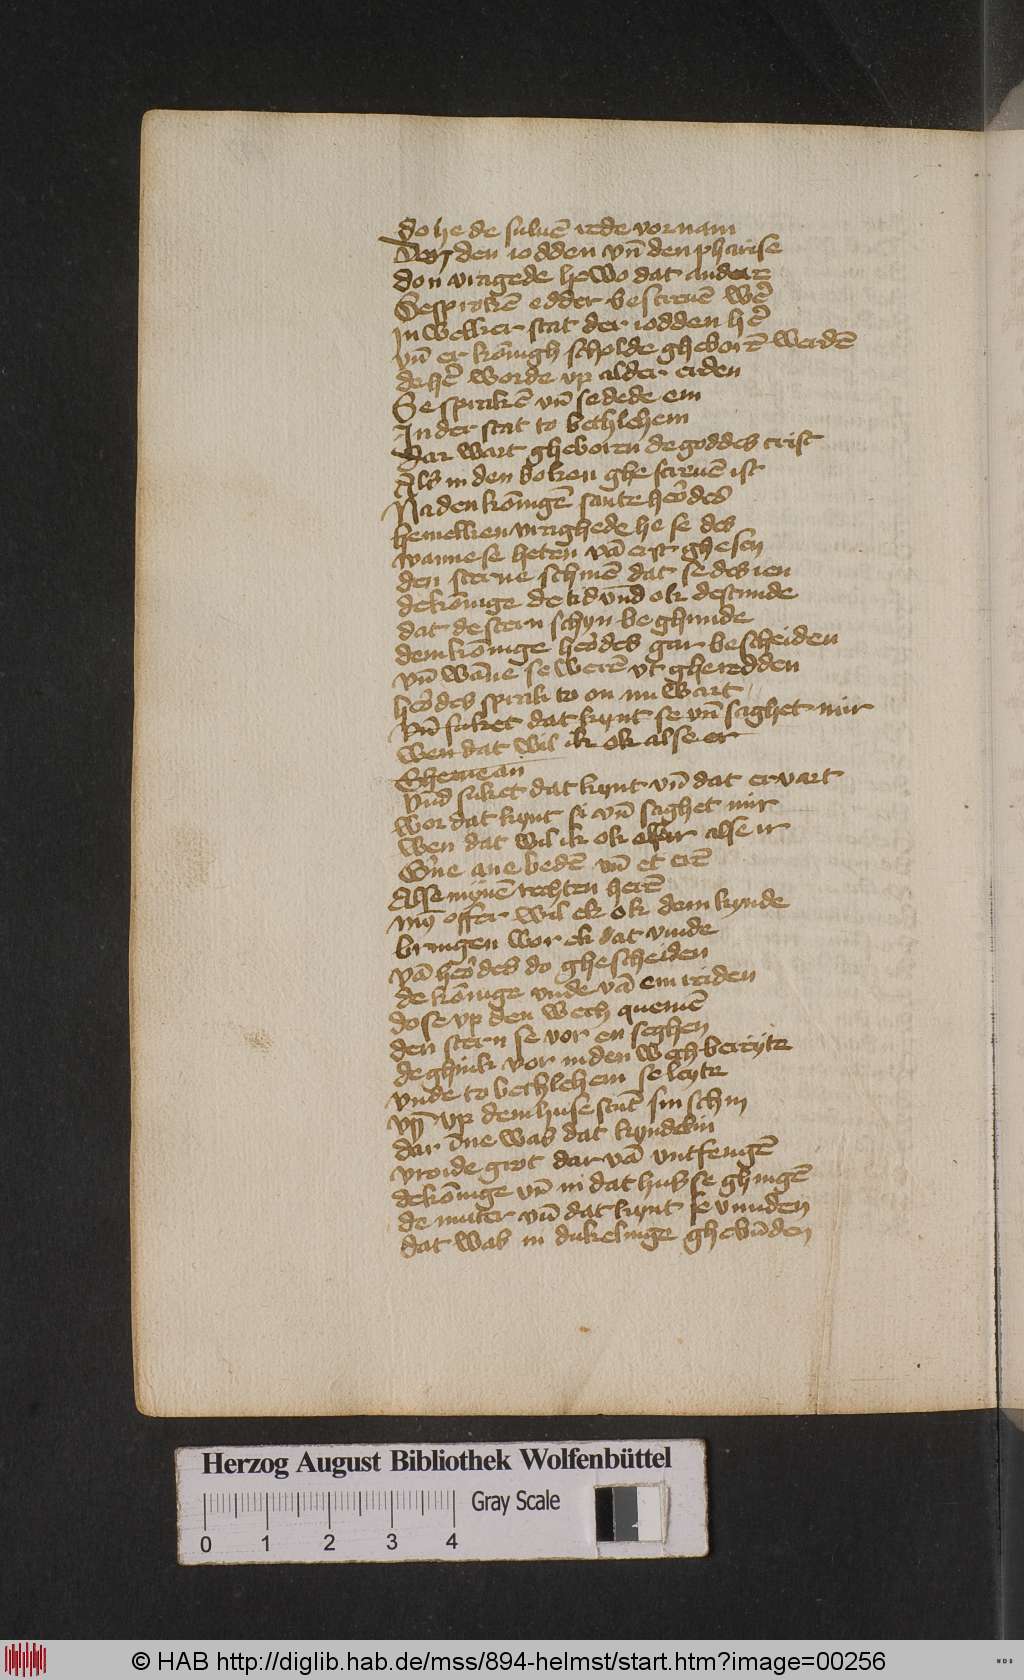 do he de suluē rede vornam
Van den iodden vn̄ den pharise
don vragede he wo dat andere
Gesprokē edder bescreuē wer̄
In welker stat der iodden her̄
vn̄ er kōnigh scholde gheborē werdē
de her̄ worde vp alder erden
Se sprakē vn̄ sedede em
In der stat to bethlehem
Dar wart gheboren de goddes crist
Als in den boken ghe screuē ist
Na den kōnīgē sante herodes
hemelken vraghede he se des
wanne se heten vā erst ghesen
den sterne schinē dat se des ien
de kōnīge de tid vnd ok de stunde
dat de stern schyn beghunde
dem kōnīge herodes gar bescheiden
vn̄ wāne se werē vt gheredden
herodes sprak to on nu wart
vn̄ suket dat kynt se vn̄ saghet mir
wen dat wil ik ok alse er
Gherne an
Vnd suket dat kynt vn̄ dat ervart
wor dat kynt si vn̄ saghet mir
wen dat wil ik ok alse ir
Gerne ane bedē vn̄ et erē
Alse mynē rechten herē
myn offer wil ek ok dem kynde
bringen wor ek dat vinde
vā herodes do ghescheiden
de kōnīge vnde vā em reiden
do se vp den wech quemē
den stern se vor en seghen
de ghink vor in den wegh bereyte
vnde to bethlehem se leyte
vn̄ vp dem huse stūt sin schin
dar īne was dat kyndelin
vroide grot dar vā vntfengē
de kōnīge vn̄ in dat hus se ghingē
de muter vn̄ dat kynt se vunden
dat was in dukelinge ghebūden
Herzog August Bibliothek Wolfenbüttel
Gray Scale
0 1 2 3 4
© HAB http://diglib.hab.de/mss/894-helmst/start.htm?image=00256